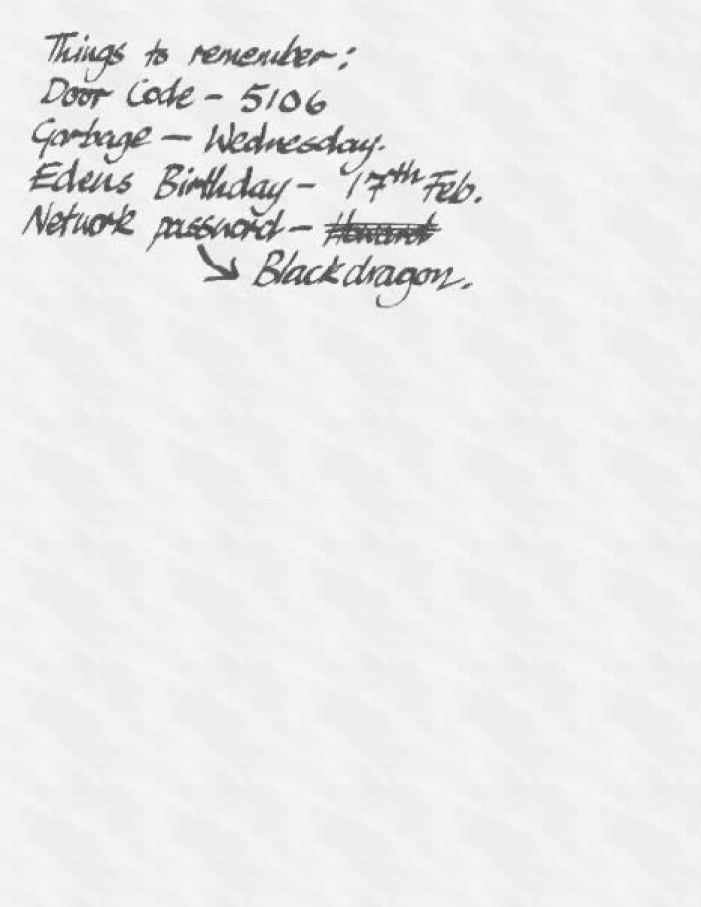 Things to remember:
Door Code - 5106
Garbage — Wednesday.
Edens Birthday - 17th Feb.
Network password -
Blackdragon.